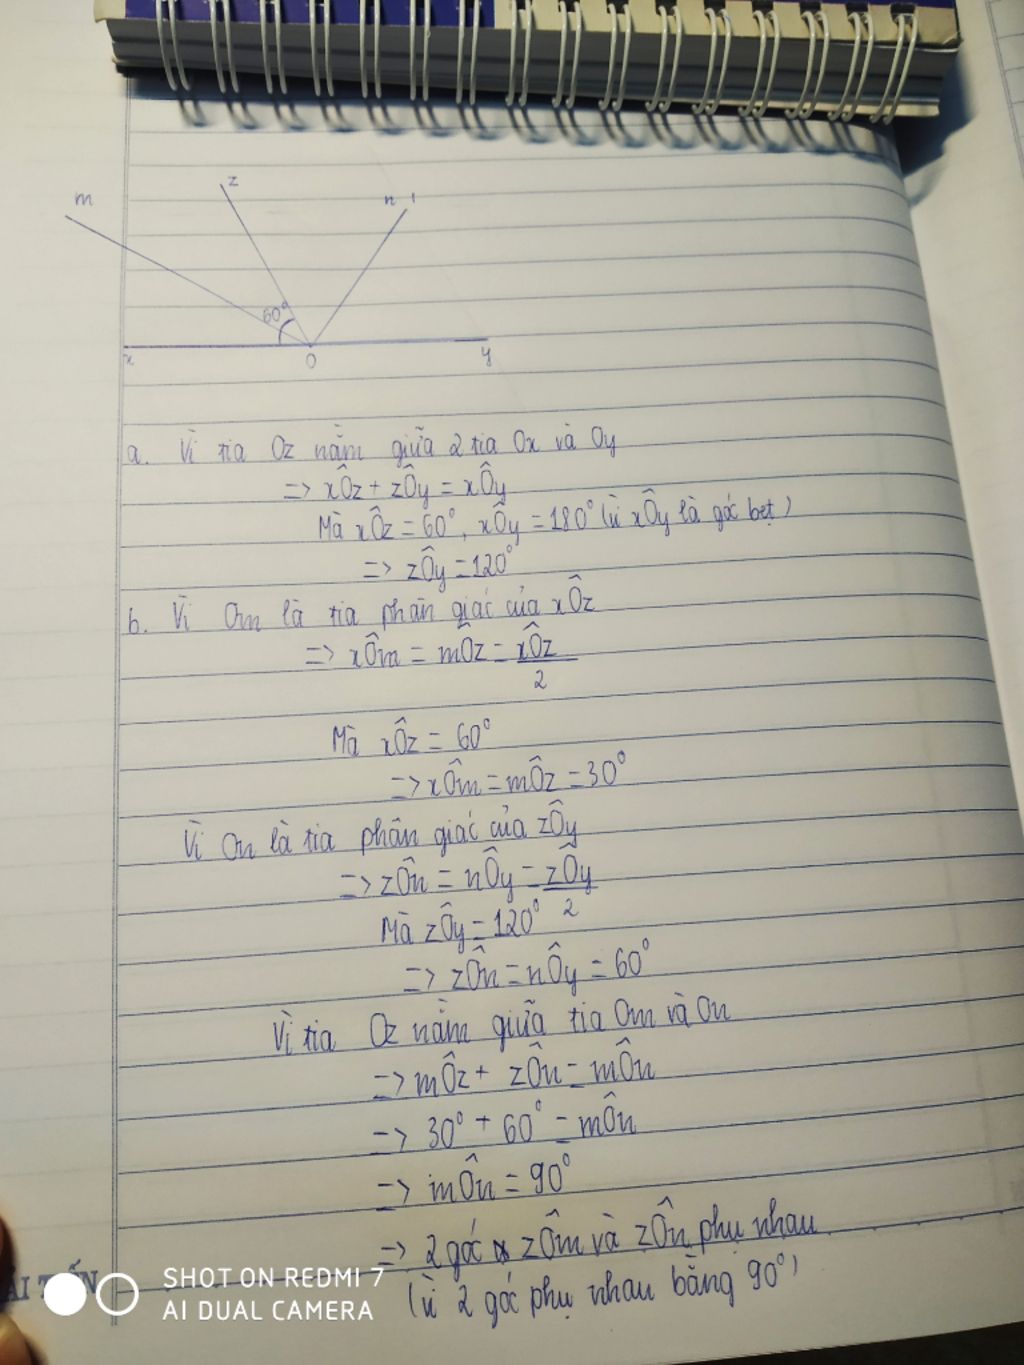 m
z
n
60°
x
O
y
a. Vì tia Oz nằm giữa 2 tia Ox và Oy
=> xÔz + zÔy = xÔy
Mà xÔz = 60°, xÔy = 180° (vì xÔy là góc bẹt)
=> zÔy = 120°
b. Vì Om là tia phân giác của xÔz
=> xÔm = mÔz = xÔz
2
Mà xÔz = 60°
=> xÔm = mÔz = 30°
Vì On là tia phân giác của zÔy
=> zÔn = nÔy = zÔy
2
Mà zÔy = 120°
=> zÔn = nÔy = 60°
Vì tia Oz nằm giữa tia Om và On
=> mÔz + zÔn = mÔn
=> 30° + 60° = mÔn
=> mÔn = 90°
=> 2 góc zÔm và zÔn phụ nhau
(vì 2 góc phụ nhau bằng 90°)
SHOT ON REDMI 7
AI DUAL CAMERA